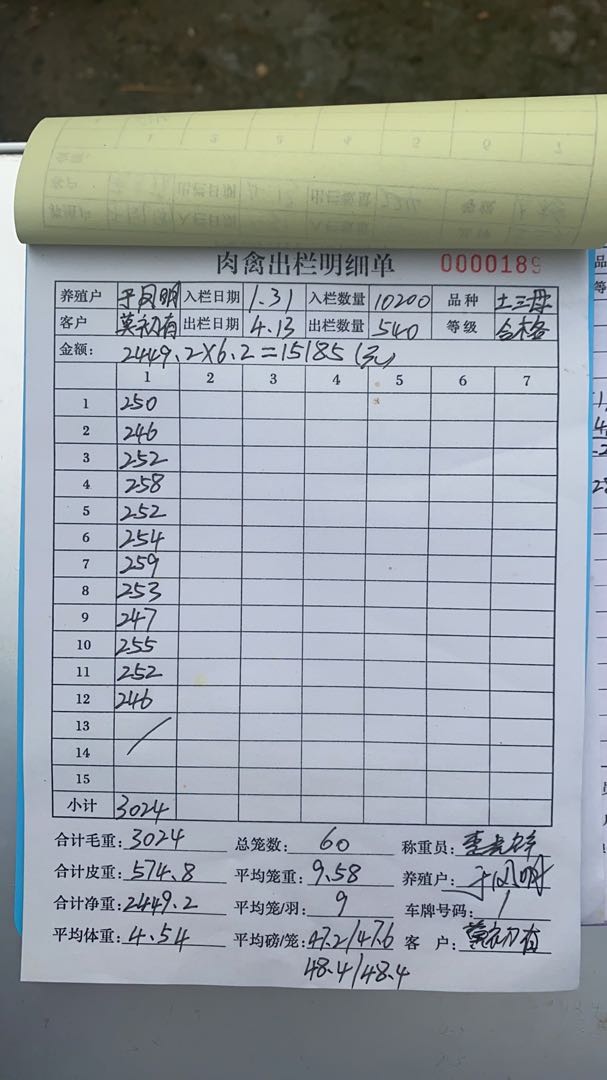 肉禽出栏明细单 0000189
养殖户 于凤明 入栏日期 1.31 入栏数量 10200 品种 土三母
客户 莫初有 出栏日期 4.13 出栏数量 540 等级 合格
金额: 2449.2×6.2=15185(元)
1 2 3 4 5 6 7
1 250
2 246
3 252
4 258
5 252
6 254
7 259
8 253
9 247
10 255
11 252
12 246
13
14
15
小计 3024
合计毛重: 3024 总笼数: 60 称重员:
合计皮重: 574.8 平均笼重: 9.58 养殖户: 于凤明
合计净重: 2449.2 平均笼/羽: 9 车牌号码: /
平均体重: 4.54 平均磅/笼: 47.2/47.6 客户: 莫初有
48.4/48.4